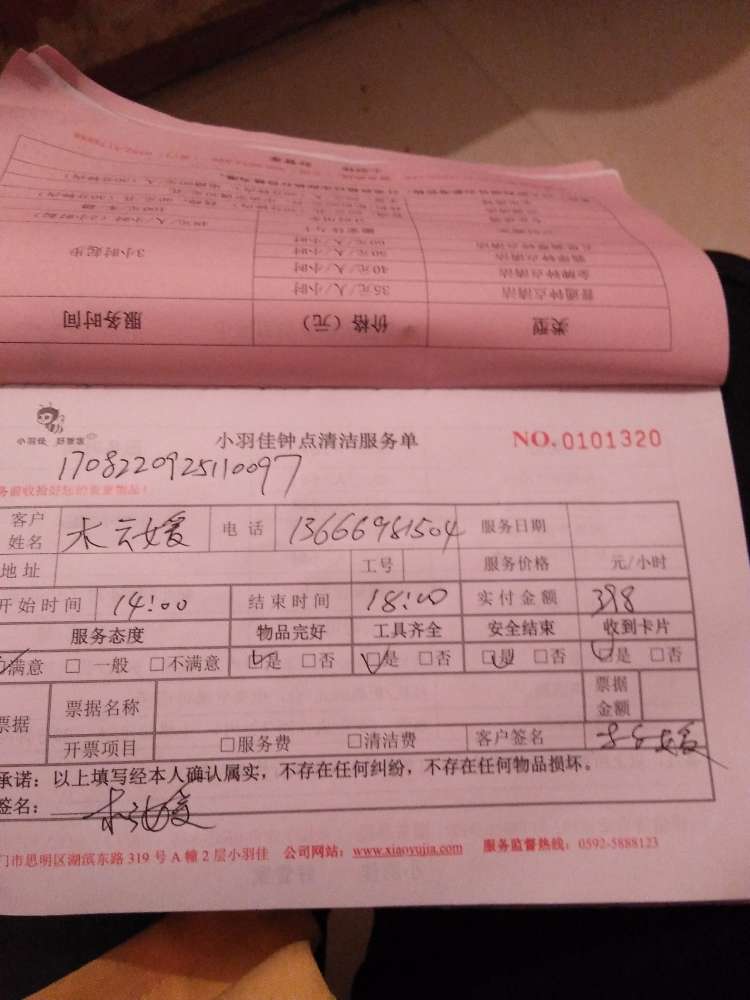 类型 价格（元） 服务时间
普通钟点清洁 35元/人/小时 3小时起步
金牌钟点清洁 40元/人/小时
50元/人/小时
60元/人/小时
小羽佳 好管家 小羽佳钟点清洁服务单 NO.0101320
1708220925110097
务前收拾好您的贵重物品！
客户姓名 木云媛 电话 13666981504 服务日期
地址 工号 服务价格 元/小时
开始时间 14:00 结束时间 18:00 实付金额 398
服务态度 物品完好 工具齐全 安全结束 收到卡片
满意 □ 一般 □不满意 □是 □否 □是 □否 □是 □否 □是 □否
票据 票据名称 票据金额
开票项目 □服务费 □清洁费 客户签名
承诺：以上填写经本人确认属实，不存在任何纠纷，不存在任何物品损坏。
签名：
门市思明区湖滨东路 319 号 A 幢 2 层小羽佳 公司网站：www.xiaoyujia.com 服务监督热线：0592-5888123